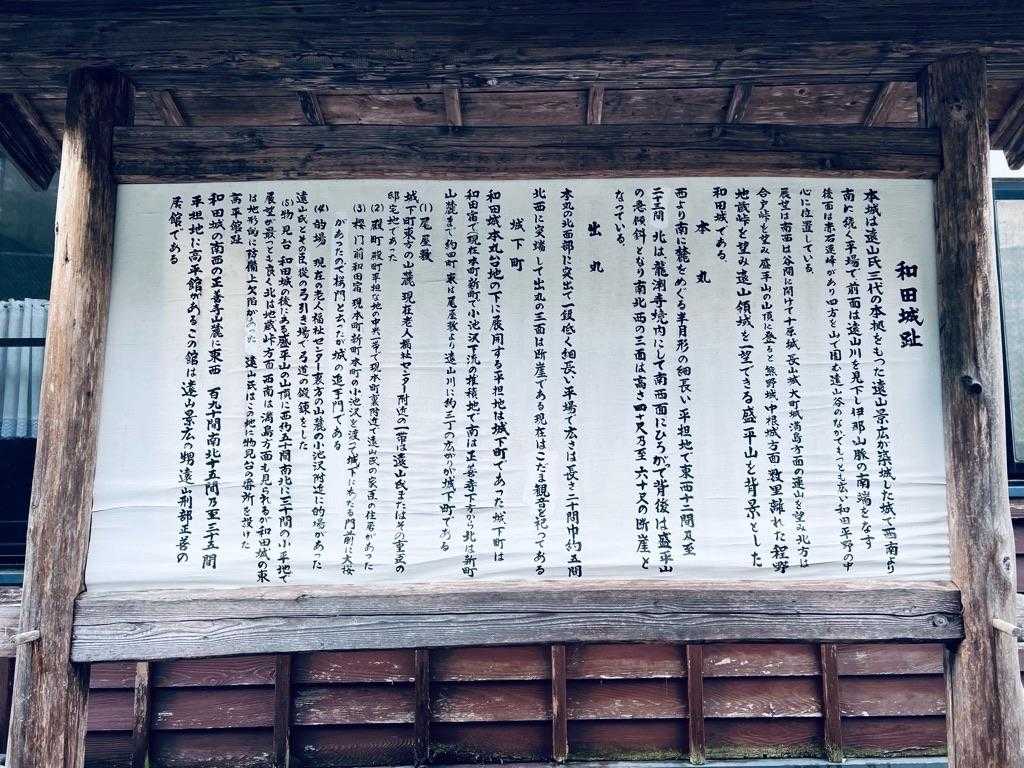 和田城趾
本城は遠山氏三代の本拠をもった遠山景広が築城した城で西南より
南に続く平場で前面は遠山川を見下し伊那山脈の南端をなす
後面は赤石連峰があり四方を山で囲む遠山谷のなかでもっとも広い和田平野の中
心に位置している。
展望は南西は谷間に開けて十原城 長山城 大町城 満島方面の連山を望み北方は
合戸峠を望み盛平山の山頂に登ると熊野城 中根城方面 数里離れた程野
地蔵峠を望み遠山領域を一望できる盛平山を背景とした
和田城である。
本丸
西より南に麓をめぐる半月形の細長い平担地で東西十二間乃至
二五間 北は龍渕寺境内にして南西面にひろがて背後は盛平山
の急傾斜となり南北西の三面は高さ四十尺乃至六十尺の断崖と
なっている。
出丸
本丸の北西部に突出て一段低く細長い平場で広さは長さ二十間巾約五間
北西に突端して出丸の三面は断崖である現在はこだま観音を祀ってある
城下町
和田城本丸台地の下に展開する平担地は城下町であった城下町は
和田宿で現在本町新町で小池沢下流の推積地で南は正善寺下方から北は新町
山麓まで約四町 東は尾屋敷より遠山川に約三丁の広がりが城下町である
(1) 尾屋敷
城下町東方の山麓 現在老人福祉センター附近の一帯は遠山氏またはその重臣の
邸宅地であった
(2) 殿町 殿町平担な地の中央一帯で現本町裏附近で遠山氏の家臣の住居があった
(3) 桜門前和田宿 現本町新町本町の小池沢を渡って城下にわたる門前に大桜
があったので桜門と云ったが城の追手門である
(4) 的場 現在の老人福祉センター裏方の山麓の小池沢附近に的場があった
遠山氏とその臣後の弓引き場でる道の鍛錬をした
(5) 物見台 和田城の後にある盛平山の山頂に西約五十間南北に三十間の小平地で
展望が最っとも良く北は地蔵峠方面 西南は満島方面も見られるが和田城の東
は地形的に防備上欠陥があった 遠山氏はこの地に物見台の番所を設けた
高平館趾
和田城の南西の正善寺山麓に東西 百九十間南北十五間乃至三十五間
平担地に高平館がありこの館は遠山景広の甥遠山刑部正善の
居館である